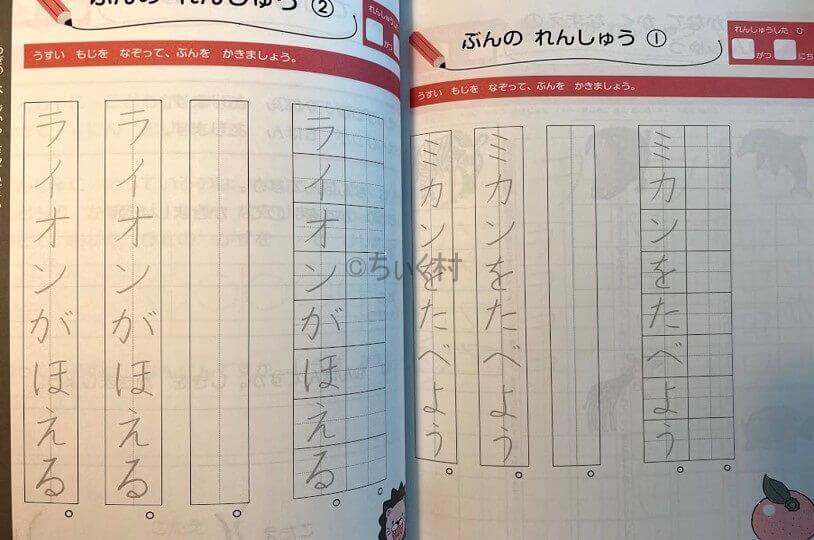 ぶんの れんしゅう ①
れんしゅうした ひ
がつ にち
うすい もじを なぞって、ぶんを かきましょう。
ミカンをたべよう。
ミカンをたべよう。
ミカンをたべよう。
ぶんの れんしゅう ②
れんしゅうした
がつ
うすい もじを なぞって、ぶんを かきましょう。
ライオンがほえる。
ライオンがほえる。
ライオンがほえる。
©ちいく村